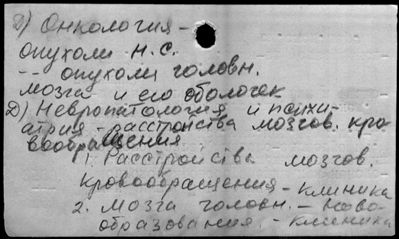 Д) Онкология -
опухоли Н.С.
-- опухоли головн.
мозга и его оболочек
Д) Невропатология и психи-
атрия - расстройства мозгов. кро
вообращения
1. Расстройства мозгов.
кровообращения - клиника
2. Мозга головн. - Ново-
образования. - клиника